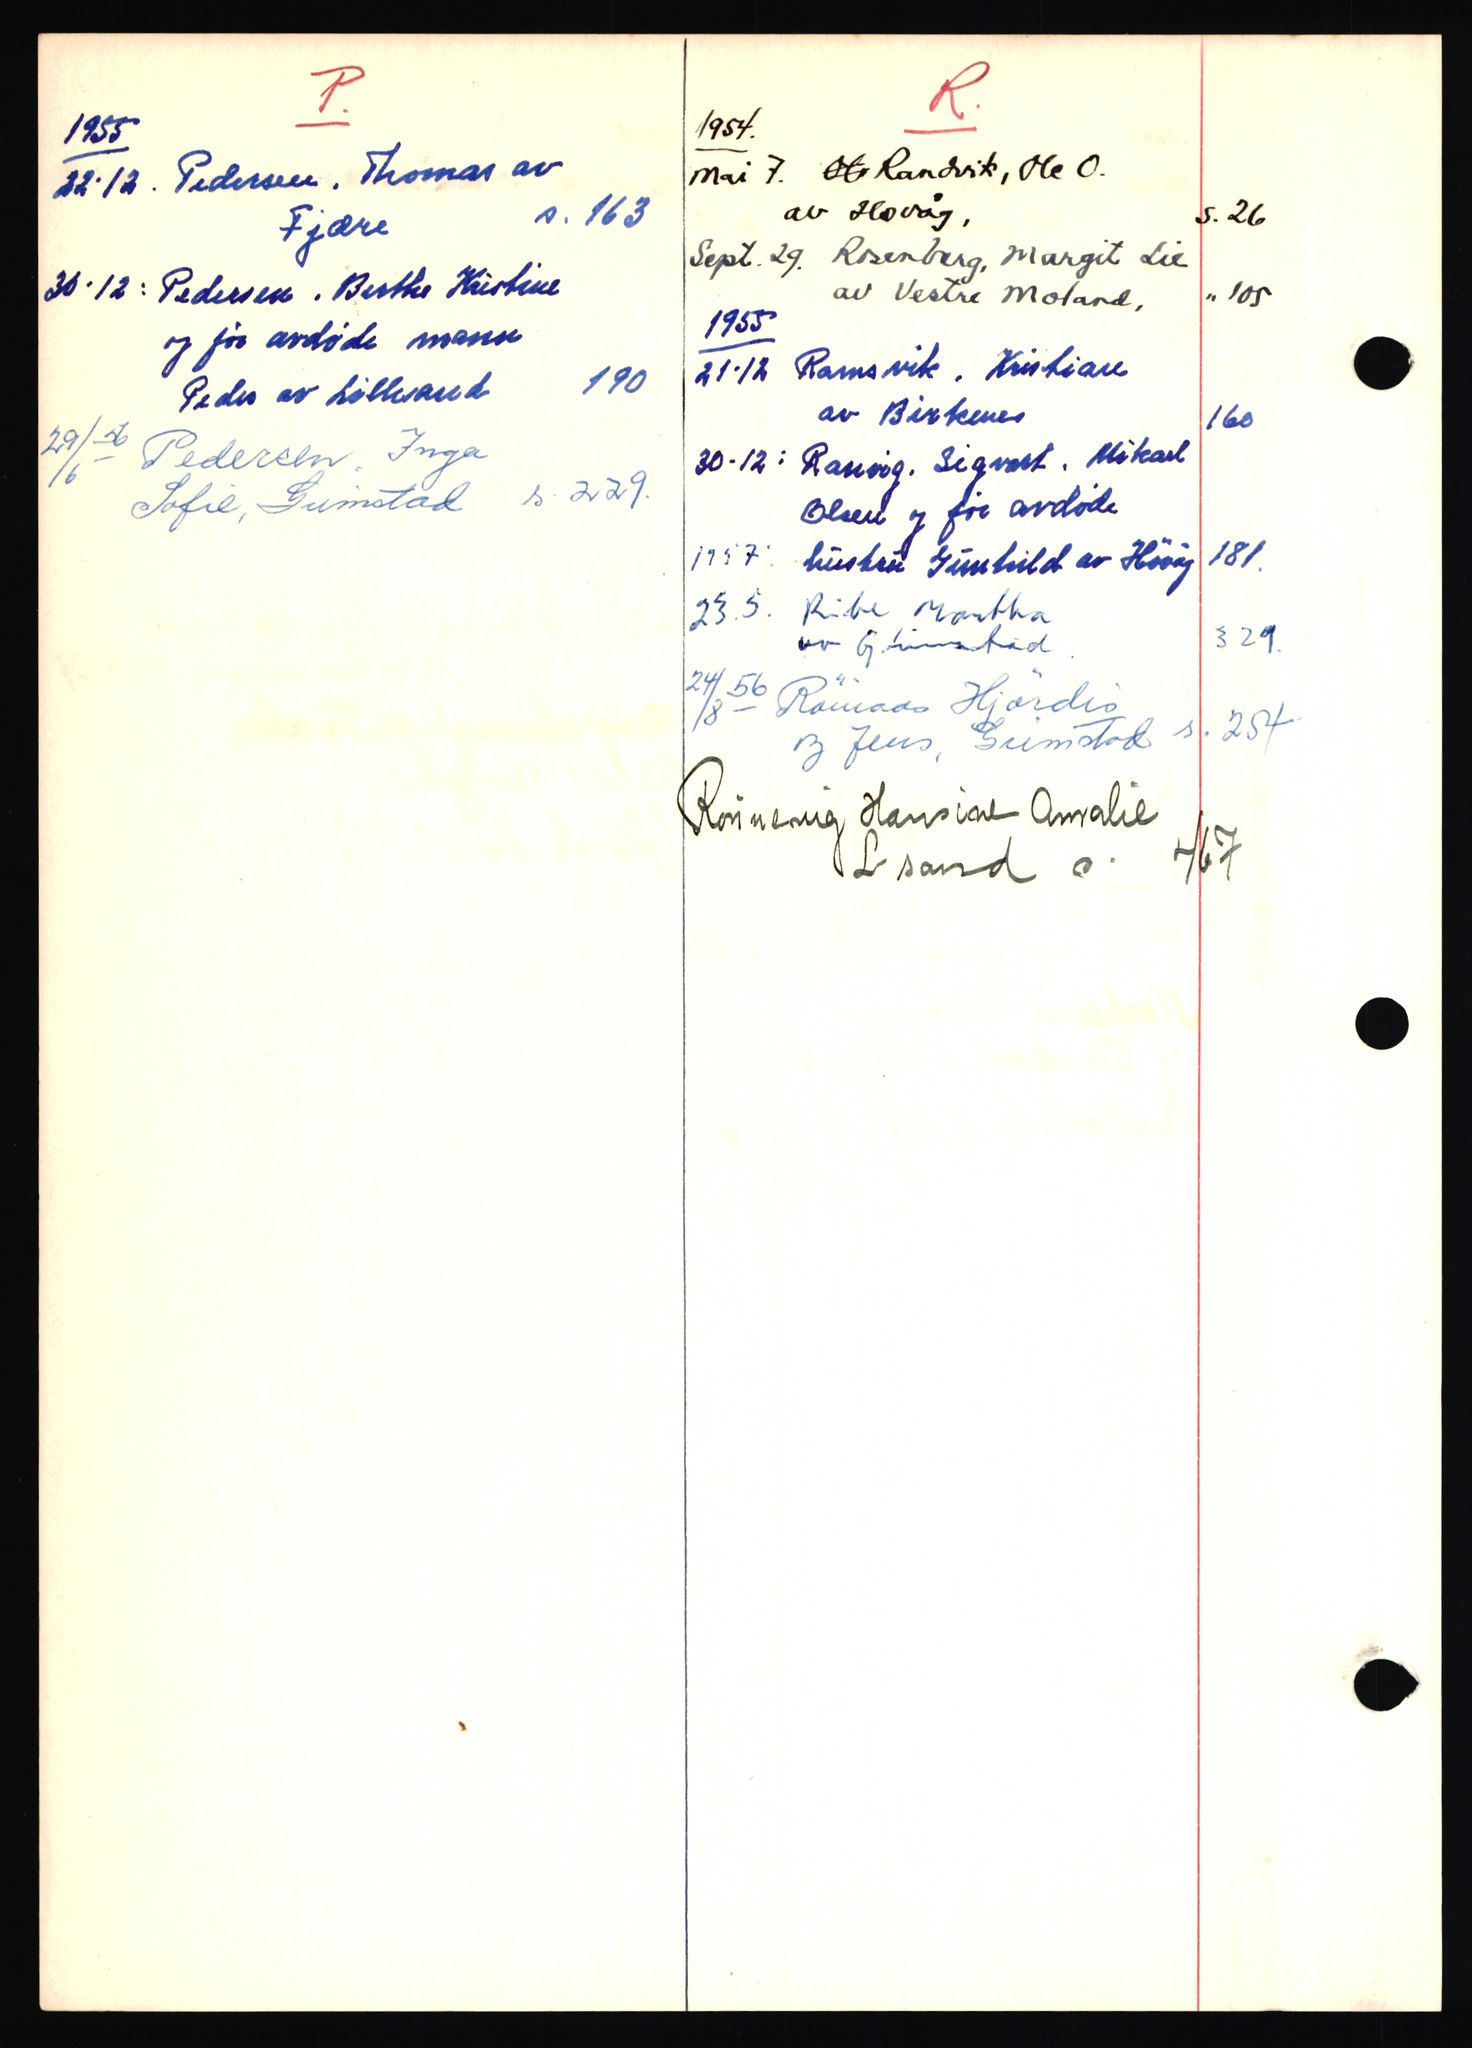 P.
1955
22.12. Pedersen, Thomas av
Fjære s. 163
30.12: Pedersen, Berthe Kristine
og for avdøde mann
Peder av Lillesand 190
29/6 56 Pedersen, Inga
Sofie, Grimstad s. 229.
R.
1954.
Mai 7. Randvik, Ole O.
av Høvåg, s. 26
Sept. 29. Rosenberg, Margit Lie
av Vestre Moland, " 105
1955
21.12 Ramsvik, Kristiane
av Birkenes 160
30.12: Ranvig, Sigvart, Mikael
Olsen og for avdøde
hustru Gunhild av Høvåg 181.
1957
23.5. Ribe Martha
av Grimstad 329.
24/8 56 Hjördis
og Jens, Grimstad s. 254
Rönnevig Hansine Amalie
L sand s. 467